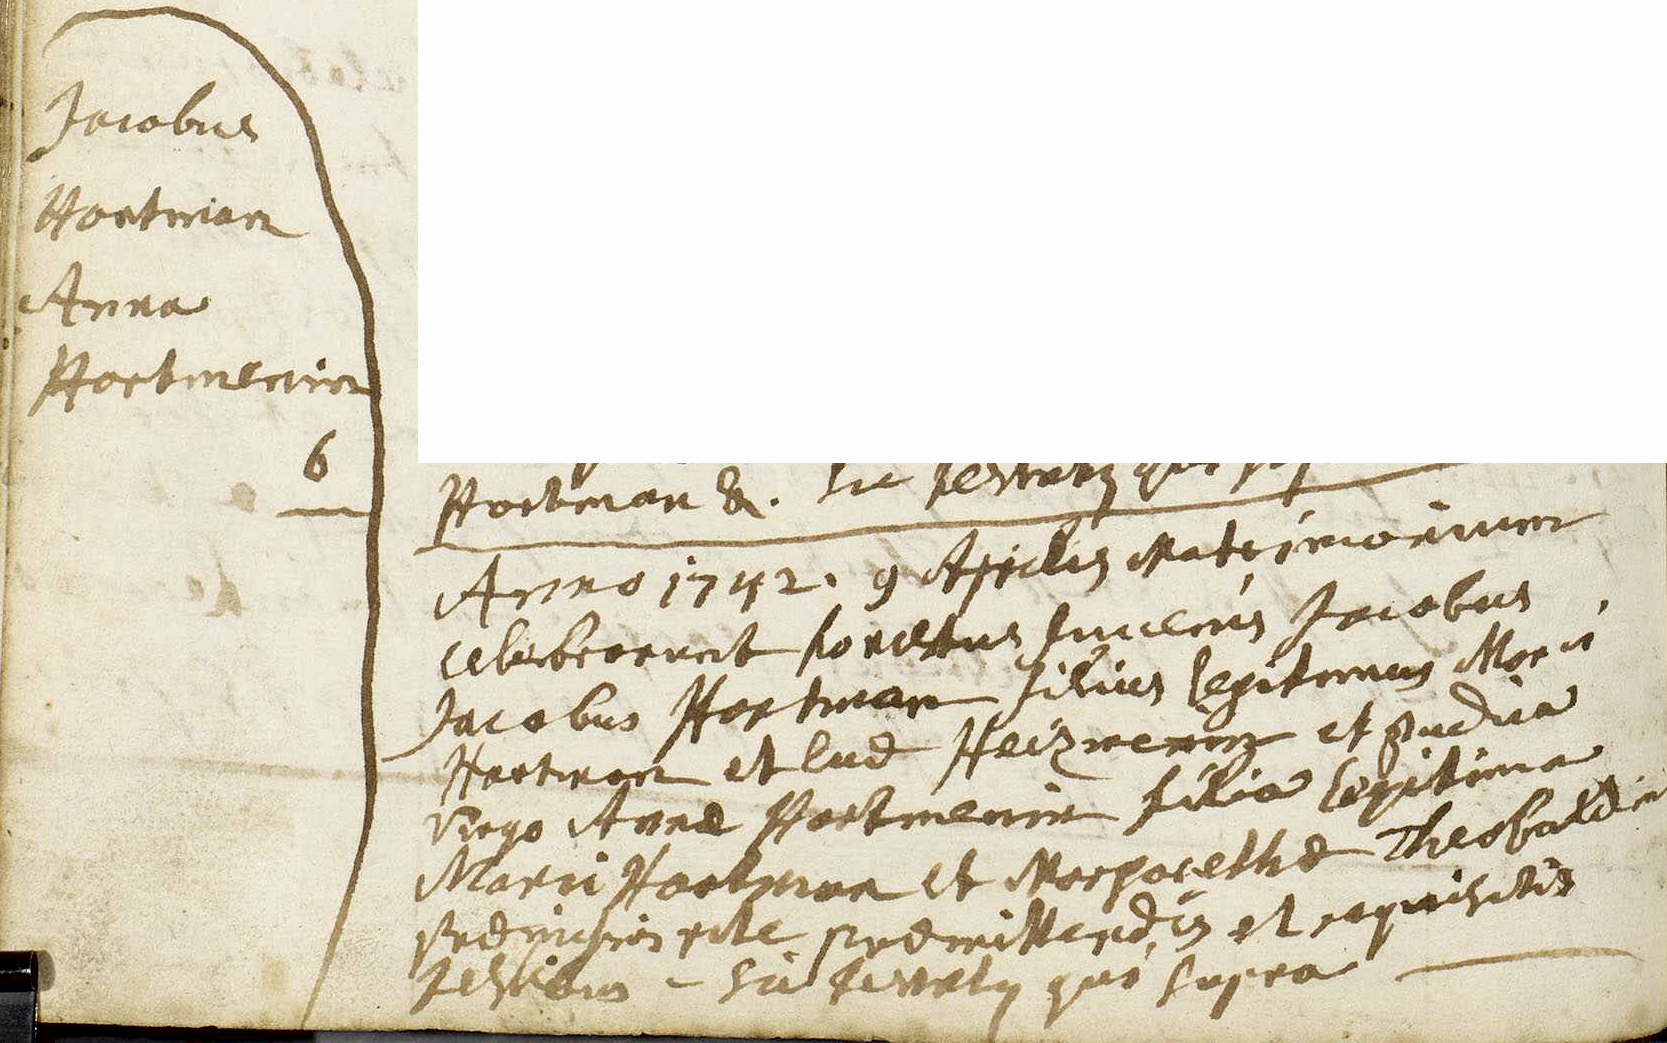 Jacobus
Hartman
Anna
Hartmenin
6
Hartman &. sic testatur qui
Anno 1742. 9 Aprilis Matrimonium
celebrarunt honestus juvenis Jacobus
Jacobus Hartman filius legitimus Marci
Hartman et Eud Heizmenin et pudica
virgo Anna Hartmenin filia legitima
Marci Hartman et Margarethæ Theobaldin
præmissis rite præmittendis et requisitis
testibus - sic testatur qui supra